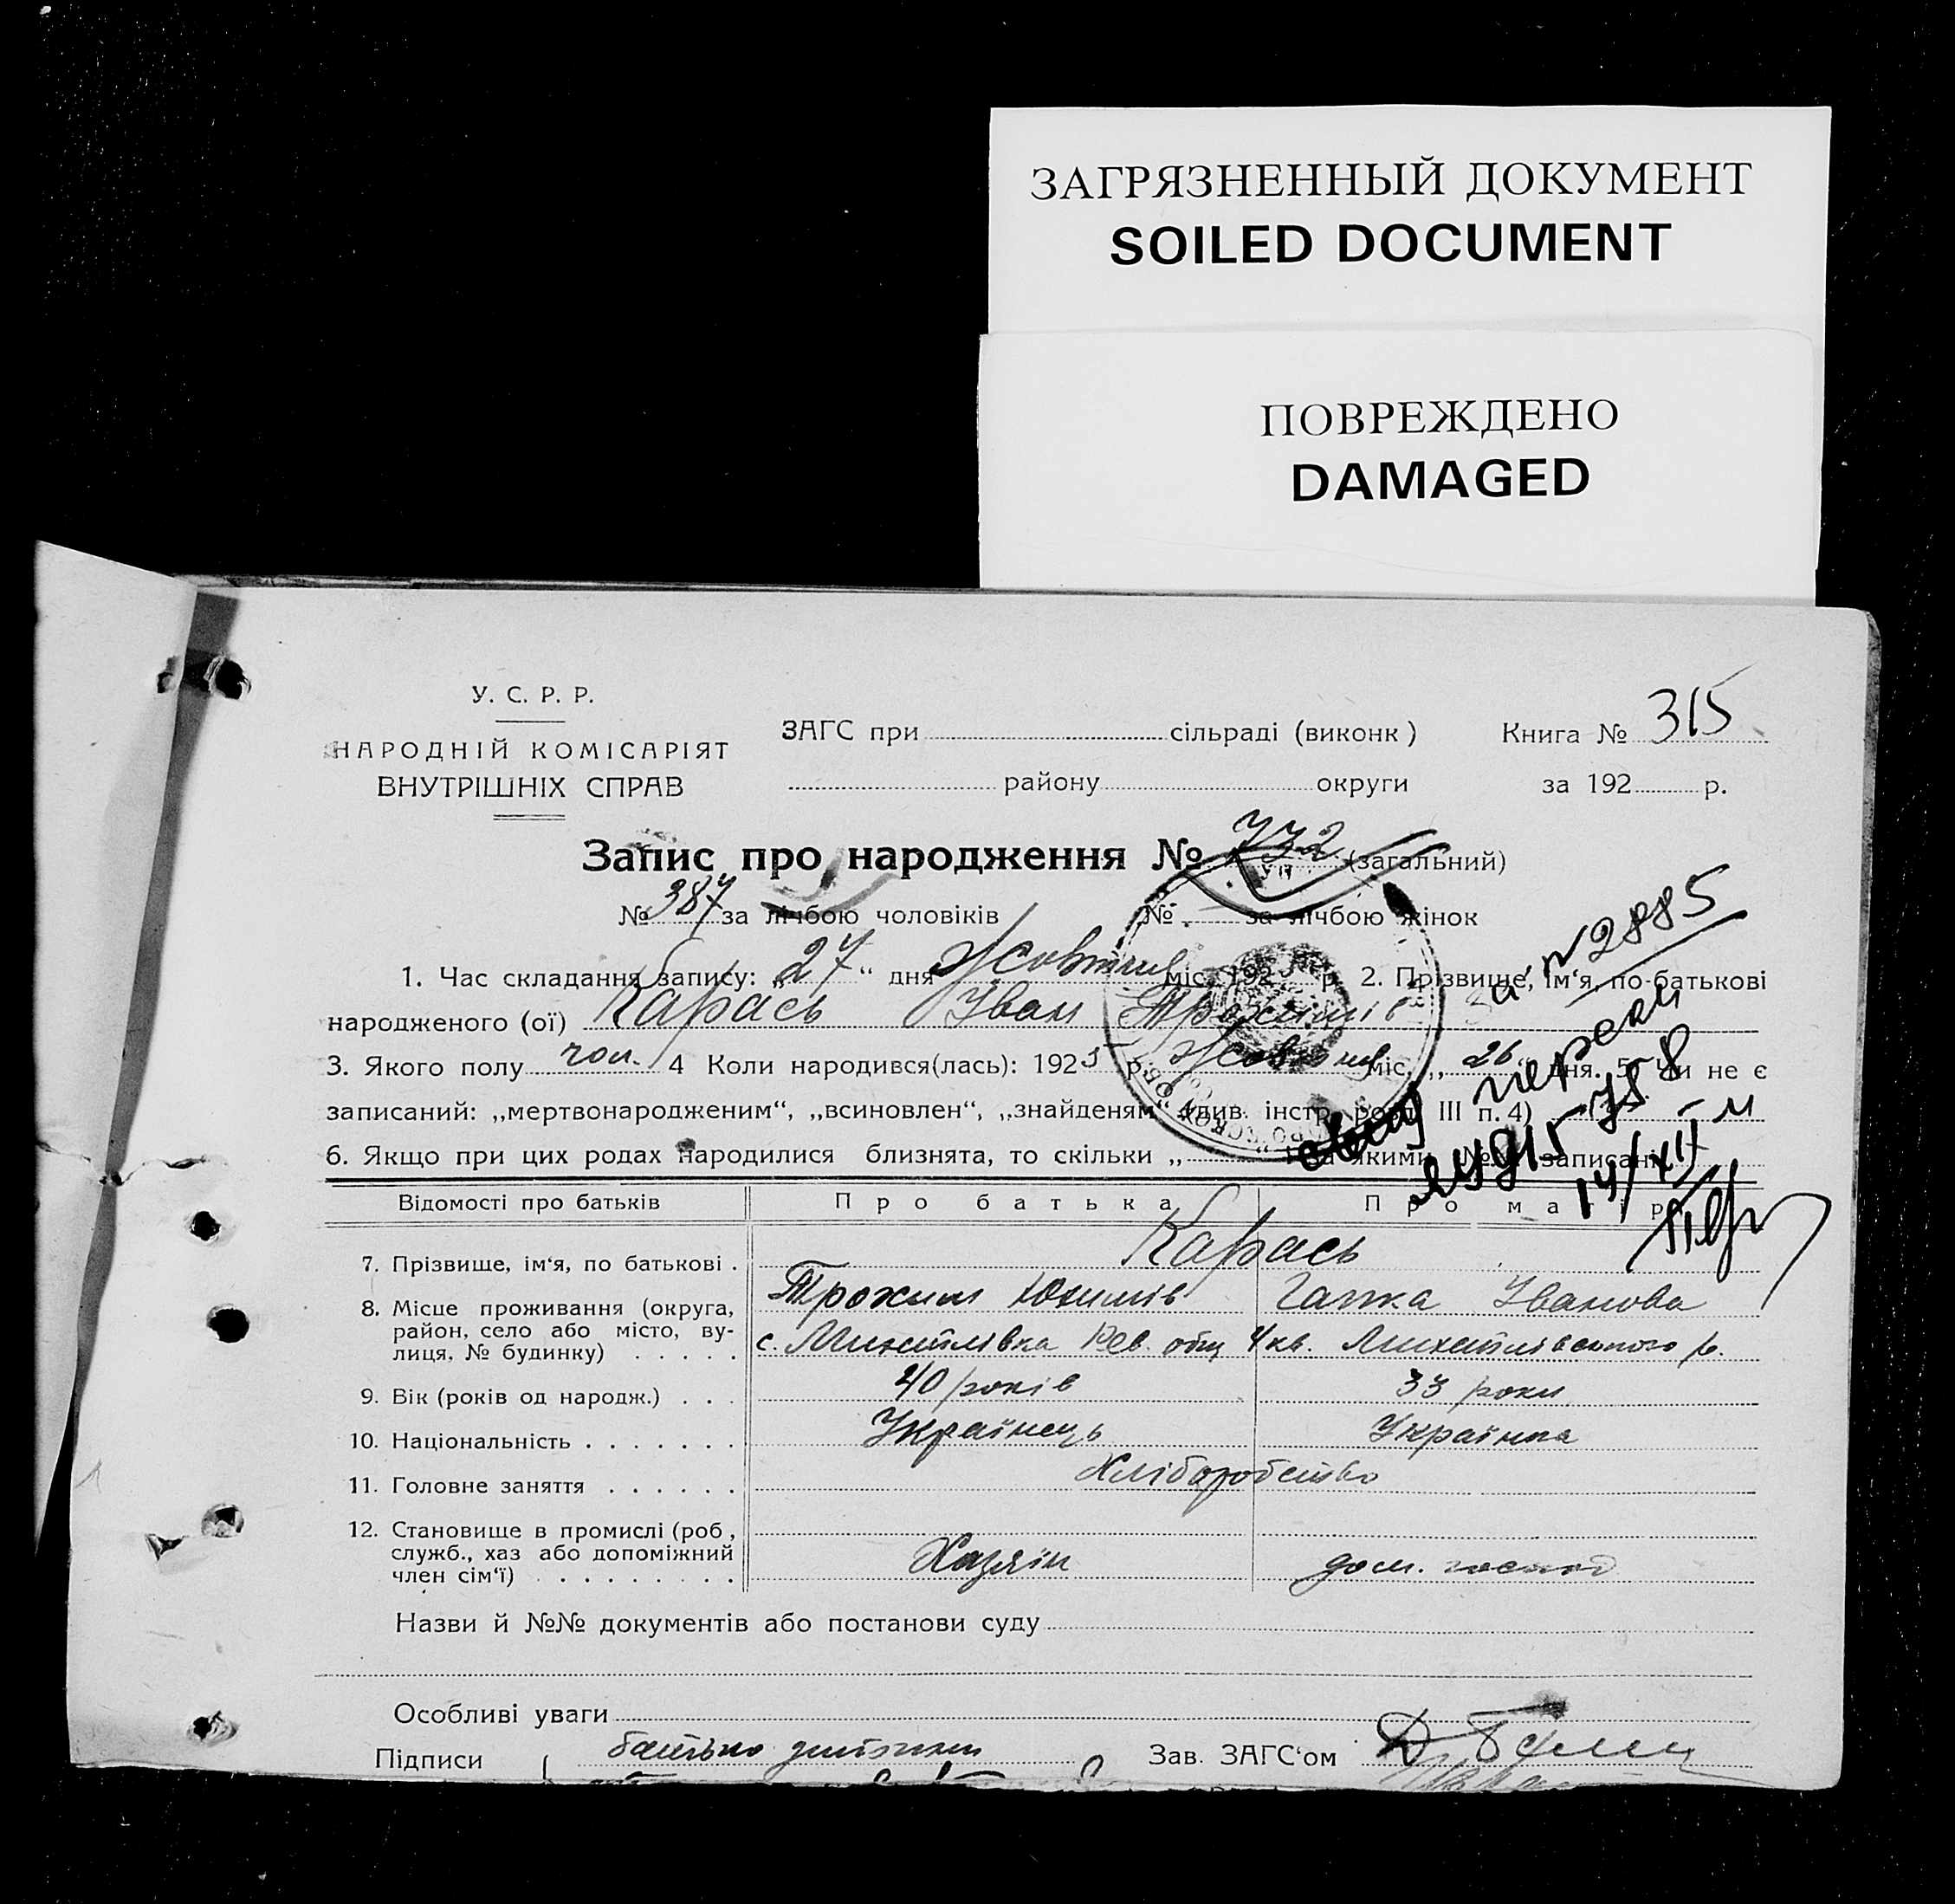 ЗАГРЯЗНЕННЫЙ ДОКУМЕНТ
SOILED DOCUMENT
ПОВРЕЖДЕНО
DAMAGED
У. С. Р. Р.
НАРОДНІЙ КОМІСАРІЯТ
ВНУТРІШНІХ СПРАВ
ЗАГС при сільраді (виконк)
району округи
Книга № 315
за 192 р.
Запис про народження № 732 (загальний)
№ 387 за лічбою чоловіків № за лічбою жінок
№2885
1. Час складання запису: „27“ дня Жовтня міс. 192 р. 2. Прізвище, ім‘я, по-батькові
народженого (ої) Карась Іван Трохимів
3. Якого полу чол. 4 Коли народився(лась): 1925 р. Жовтня міс. „26“ дня. 5. Чи не є
записаний: „мертвонародженим“, „всиновлен“, „знайденям“ (див. інстр. розд. III п. 4)
6. Якщо при цих родах народилися близнята, то скільки „ “ і за якими №№ записані
14/XII
Відомості про батьків Про батька Про матір
7. Прізвище, ім‘я, по батькові . Карась
Трохим Юхимів Гапка Іванова
8. Місце проживання (округа,
район, село або місто, ву-
лиця, № будинку) . . . . . с. Михайлівка Рев. общ 4 кв. Михайлівського р.
9. Вік (років од народж.) . . . 40 років 33 роки
10. Національність . . . . . . . Українець Українка
11. Головне заняття . . . . . . Хліборобство
12. Становище в промислі (роб,
служб., хаз або допоміжний
член сім‘ї) . . . . . . . . . Хазяїн дом. госпо
Назви й №№ документів або постанови суду
Особливі уваги
Підписи батько дитини Зав. ЗАГС‘ом